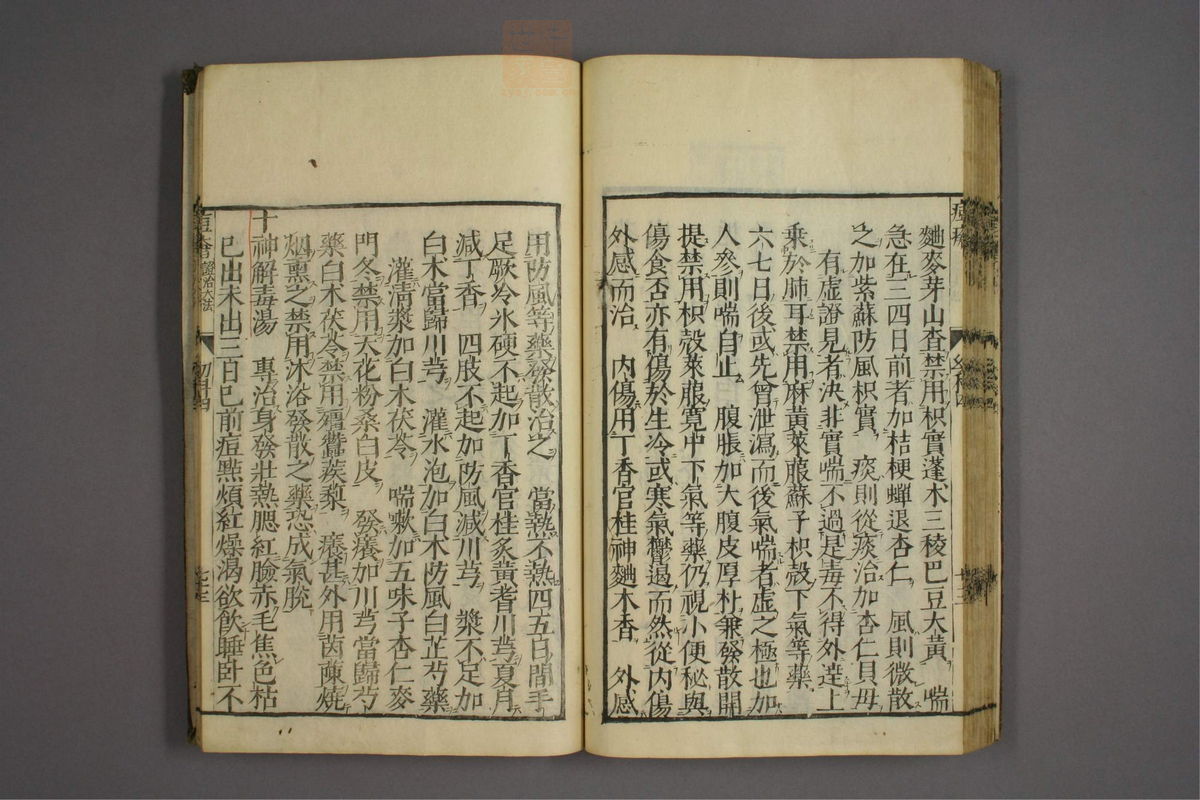 麯麥芽山査禁用枳實蓬朮三稜巴豆大黃　喘
急在三四日前者加桔梗蟬退杏仁　風則微散
之加紫蘇防風枳實　痰則從痰治加杏仁貝母
有虛證見者決非實喘不過是毒不得外達上
乘於肺耳禁用麻黃萊菔蘇子枳殻下氣等藥
六七日後或先曾泄瀉而後氣喘者虛之極也加
人參則喘自止　腹脹加大腹皮厚朴兼發散開
提禁用枳殻萊菔寬中下氣等藥仍視小便秘與
傷食否亦有傷於生冷或寒氣鬱遏而然從内傷
外感而治　内傷用丁香官桂神麯木香　外感
用防風等藥發散治之　當熱不熱四五日間手
足厥冷氷硬不起加丁香官桂炙黃耆川芎夏月
減丁香　四肢不起加防風減川芎　漿不足加
白朮當歸川芎　灌水泡加白朮防風白芷芍藥
灌清漿加白朮茯苓　喘嗽加五味子杏仁麥
門冬禁用天花粉桑白皮　發癢加川芎當歸芍
藥白朮茯苓禁用殭蠶蒺藜　癢甚外用茵蔯燒
烟熏之禁用沐浴發散之藥恐成氣脫
十神解毒湯　專治身發壯熱腮紅臉赤毛焦色枯
已出未出三日已前痘㸃煩紅燥渴欲飲睡卧不